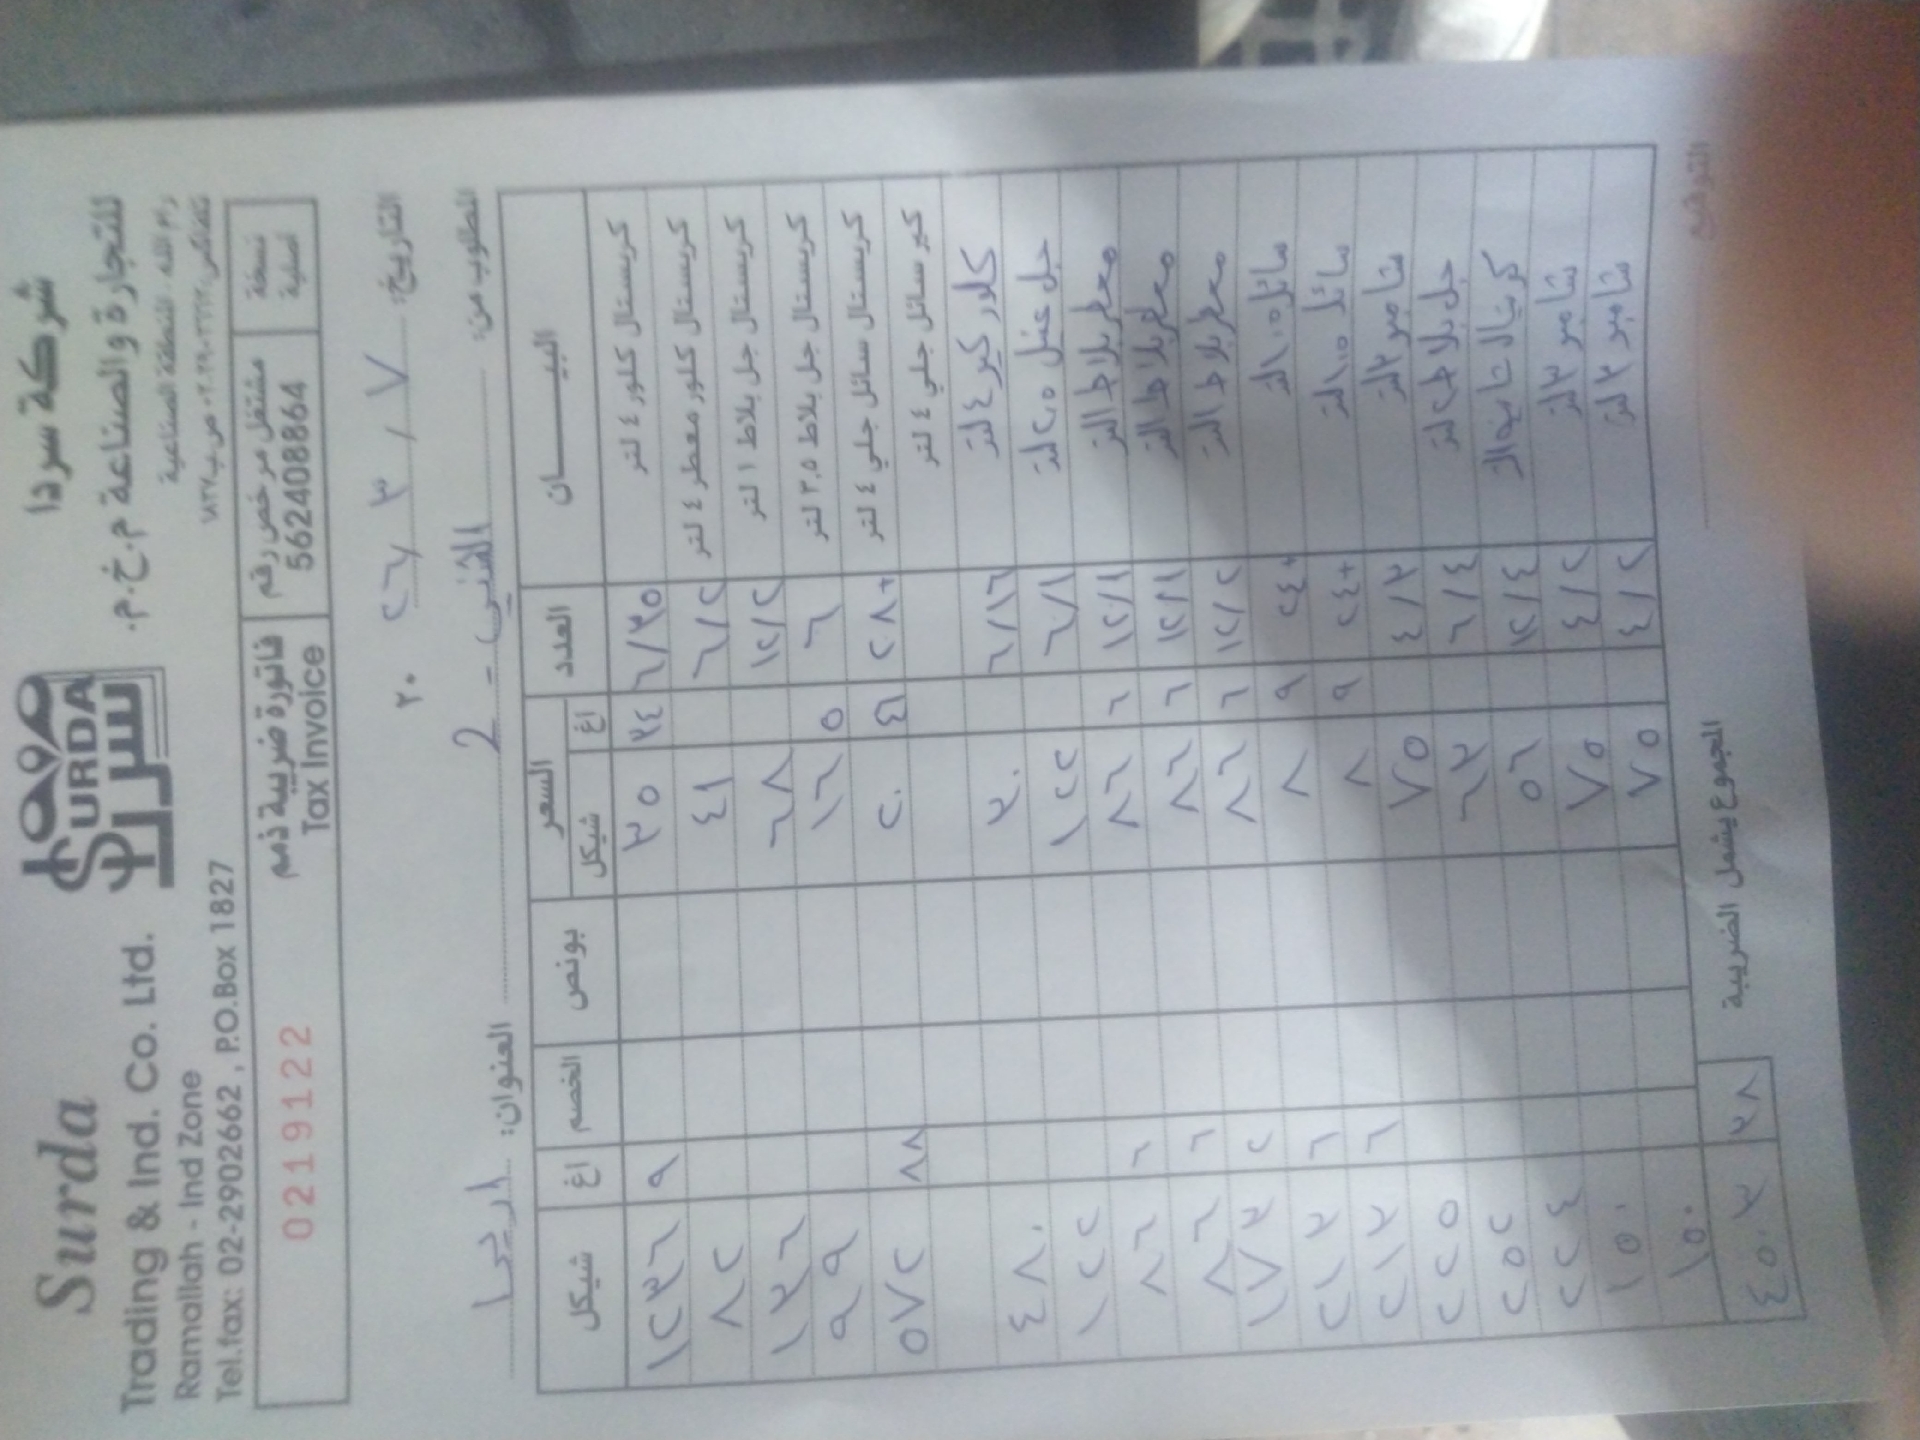 شركة سردا
للتجارة والصناعة م.خ.م.
رام الله - المنطقة الصناعية
SURDA
سردا
Surda
Trading & Ind. Co. Ltd.
Ramallah - Ind Zone
Tel.fax: 02-2902662 , P.O.Box 1827
نسخة اصلية
مشتغل مرخص رقم
562408864
فاتورة ضريبية ذمم
Tax Invoice
0219122
التاريخ: ٧ / ٣ / ٢٦ ٢٠
المطلوب من:
العنوان: اريحا
البيــــــان العدد السعر بونص الخصم اغ شيكل
شيكل اغ
كريستال كلور ٤ لتر ٦/٣٥ ٣٥ ٣٤ ٩ ١٢٣٦
كريستال كلور معطر ٤ لتر ٦/٢ ٤١ ٨٢
كريستال جل بلاط ١ لتر ١٢/٢ ٦٨ ١٣٦
كريستال جل بلاط ٣,٥ لتر ٦ ١٦ ٥ ٩٩
كريستال سائل جلي ٤ لتر ٢٨+ ٢٠ ٥٧٢ ٨٨
كير سائل جلي ٤ لتر
كلور كير ٤ لتر ٦/١٦ ٣٠ ٤٨٠
جل غسيل ٢,٥ لتر ٦/١ ١٢٢ ١٢٢
معطر بلاط ١ لتر ١٢/١ ٨٦ ٦ ٦ ٨٦
معطر بلاط ١ لتر ١٢/١ ٨٦ ٦ ٦ ٨٦
معطر بلاط ١ لتر ١٢/٢ ٨٦ ٦ ٢ ١٧٣
سائل ١,٥ لتر ٢٤+ ٨ ٩ ٦ ٢١٣
سائل ١,٥ لتر ٢٤+ ٨ ٩ ٦ ٢١٣
شامبو ٣ لتر ٤/٣ ٧٥ ٢٢٥
جل بلاط ٤ لتر ٦/٤ ٦٣ ٢٥٢
١٢/٤ ٥٦ ٢٢٤
شامبو ٣ لتر ٤/٢ ٧٥ ١٥٠
شامبو ٣ لتر ٤/٢ ٧٥ ١٥٠
المجموع يشمل الضريبة ٣٨ ٤٥٠٣
التوقيع